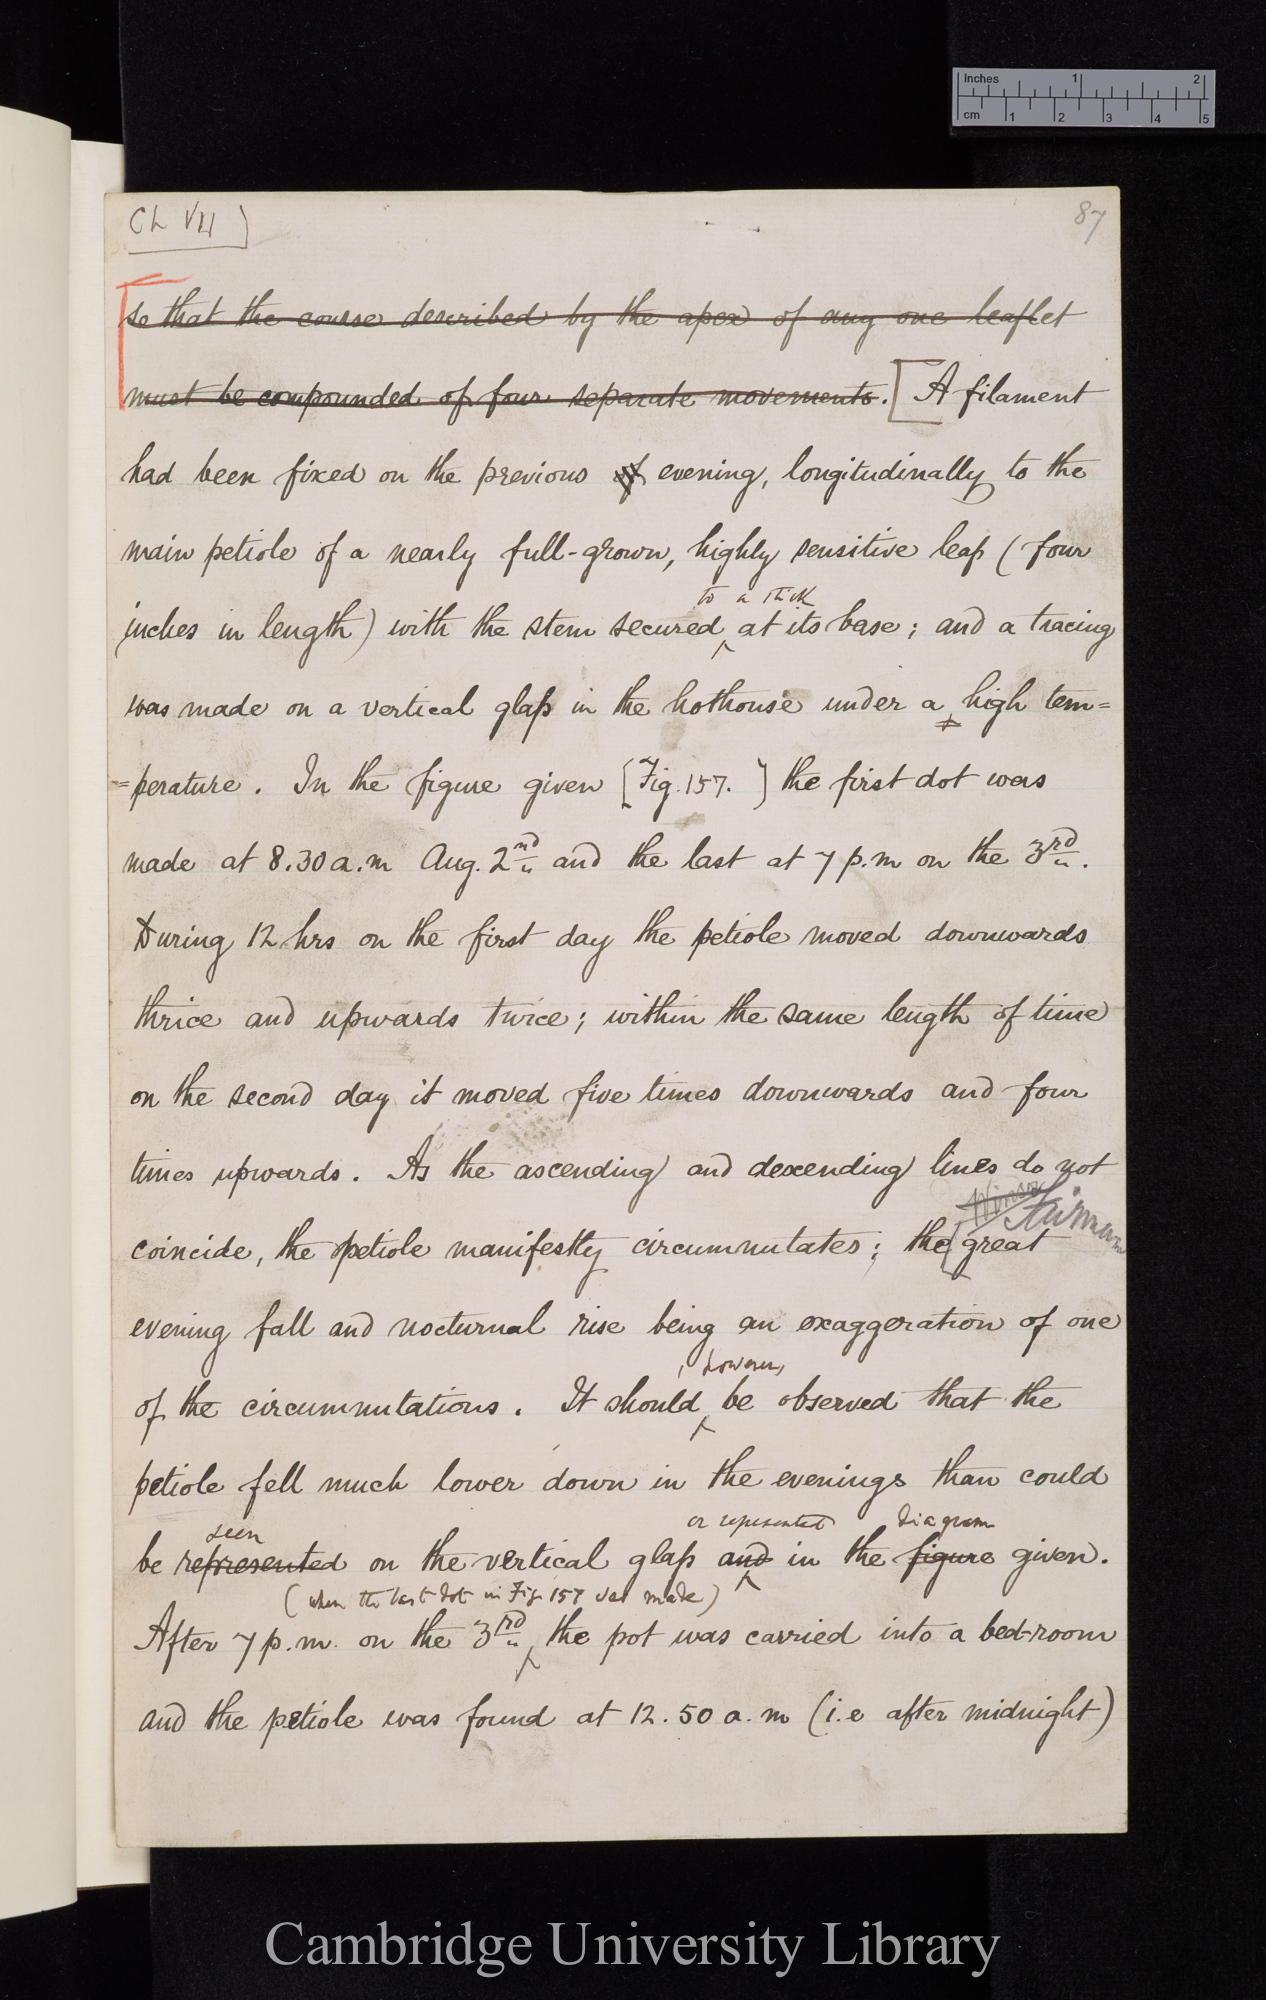 Inches 1 2
cm 1 2 3 4 5
Ch VII]
87
so that the course described by the apex of any one leaflet
must be compounded of four separate movements. [A filament
had been fixed on the previous of evening, longitudinally to the
main petiole of a nearly full-grown, highly sensitive leaf (four
to a stick
inches in length) with the stem secured ‸ at its base; and a tracing
was made on a vertical glass in the hothouse under a high tem=
=perature. In the figure given [Fig. 157.] the first dot was
made at 8.30 a.m Aug. 2nd and the last at 7 p.m on the 3rd.
During 12 hrs on the first day the petiole moved downwards
thrice and upwards twice; within the same length of time
on the second day it moved five times downwards and four
times upwards. As the ascending and descending lines do not
coincide, the petiole manifestly circumnutates; the [great
evening fall and nocturnal rise being an exaggeration of one
, however,
of the circumnutations. It should ‸ be observed that the
petiole fell much lower down in the evenings than could
seen or represented diagram
be represented on the vertical glass and ‸ in the figure given.
(when the last dot in Fig. 157 was made)
After 7 p.m. on the 3rd ‸ the pot was carried into a bed-room
and the petiole was found at 12.50 a.m (i.e after midnight)
Cambridge University Library